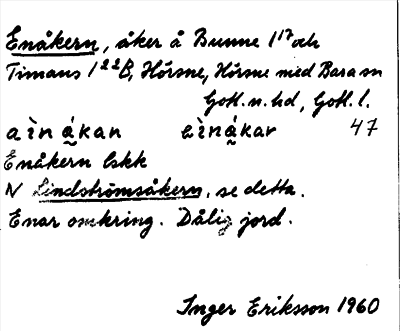 Enåkern, åker å Bunne 1¹⁷ och
Timans 1²²B, Hörsne, Hörsne med Bara sn
Gotl. n. hd, Gotl. l.
aìnákan aìnákar 47
Enåkern Eskk
N Lindströmsåkern, se detta.
Enar omkring. Dålig jord.
Inger Eriksson 1960